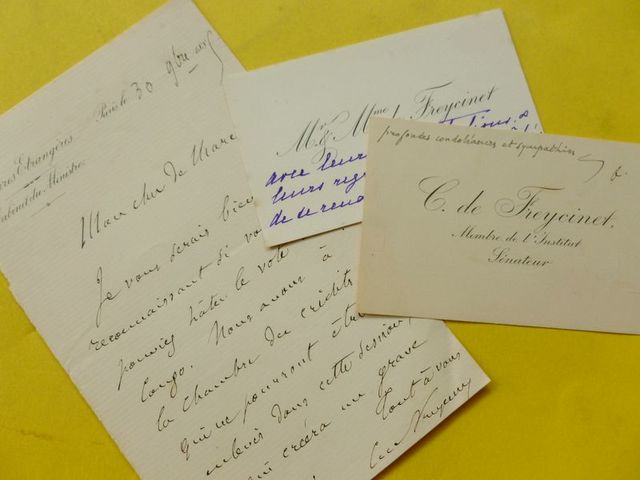 Paris, le 30 9bre 188
Étrangères
Cabinet du Ministre
Mon cher de Marc
Je vous serais bien
reconnaissant si vo
pouviez hâter le vote
Congo. Nous avons à
la Chambre des crédits
qui ne pourront être
enlevés dans cette session,
qui créera un grave
tout à vous
Mr & Mme Freycinet
avec leur
leurs reg
de se
profondes condoléances et sympathies
C. de Freycinet,
Membre de l'Institut
Sénateur